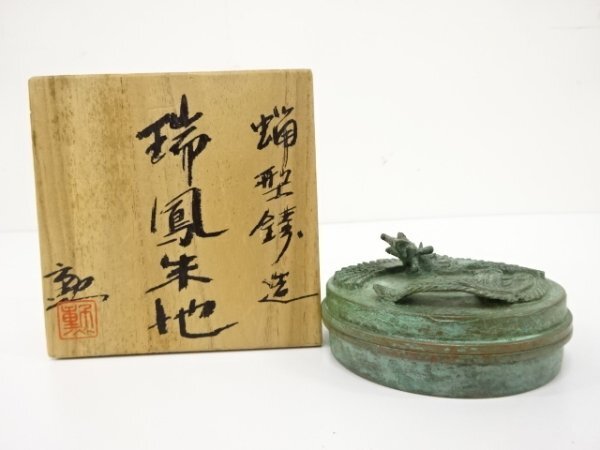 蝋型鋳造
瑞鳳朱池
勲
勲